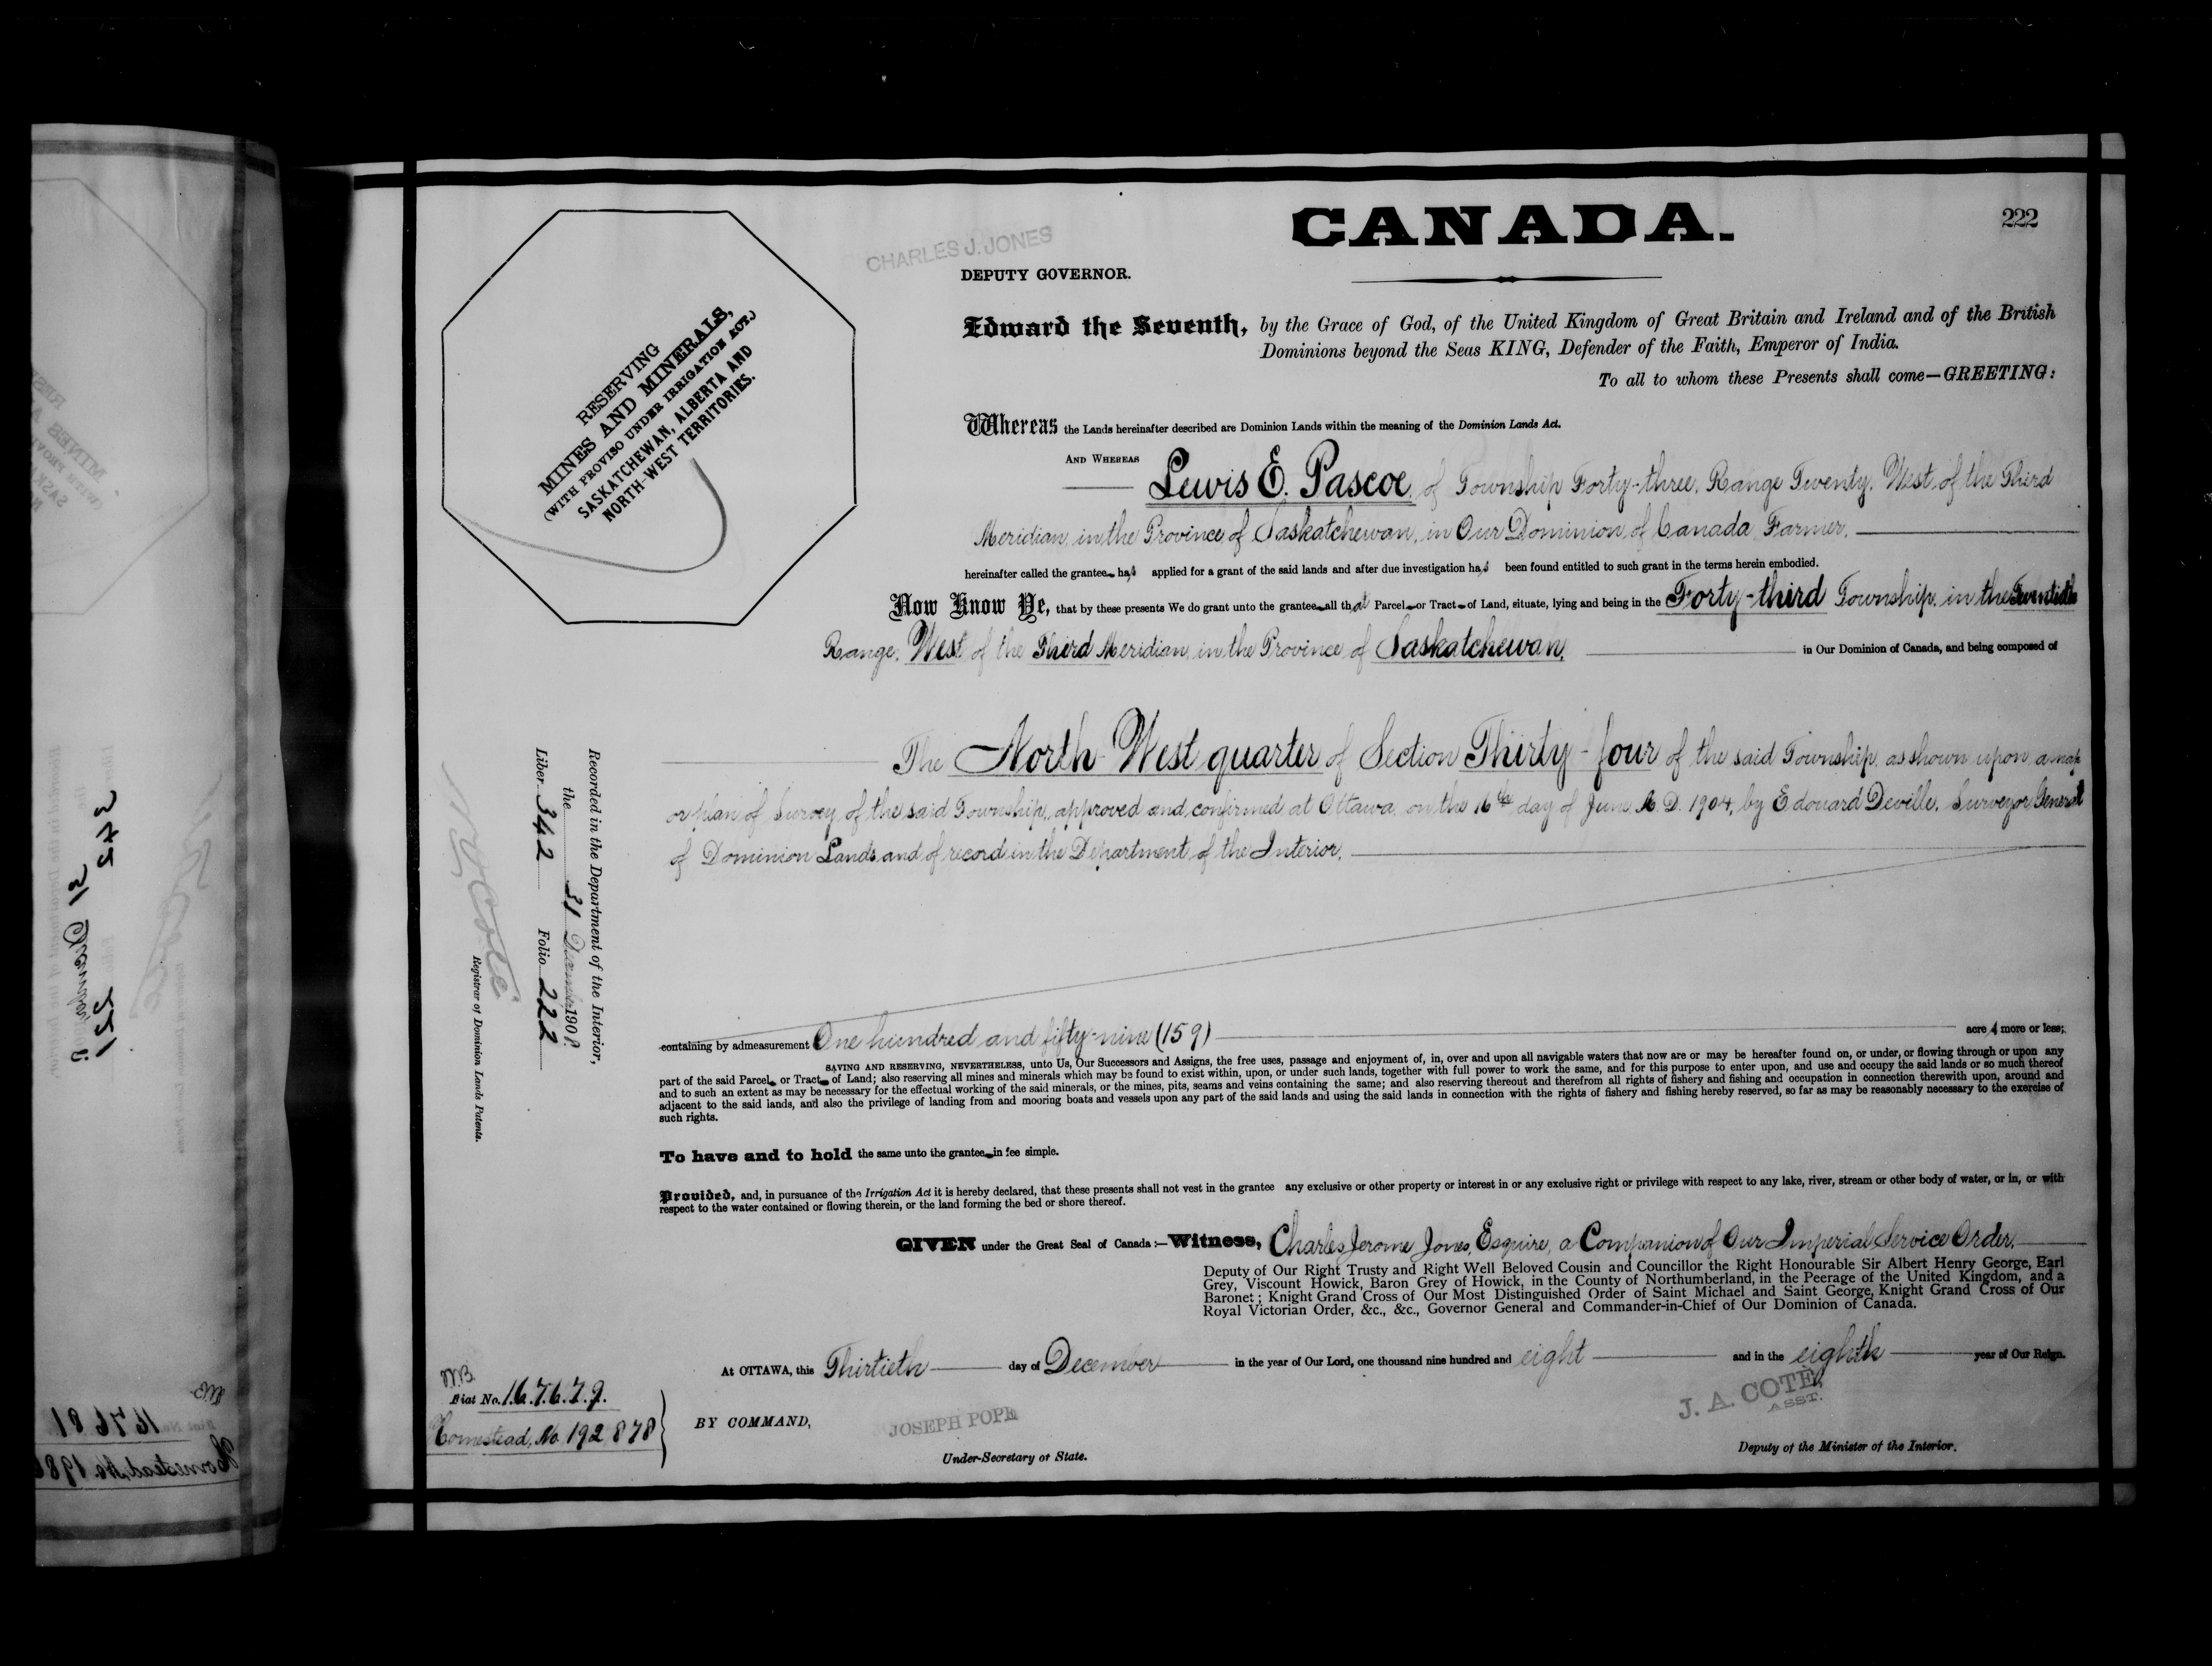 222
CANADA.
CHARLES J. JONES
DEPUTY GOVERNOR.
RESERVING
MINES AND MINERALS,
(WITH PROVISO UNDER IRRIGATION ACT.)
SASKATCHEWAN, ALBERTA AND
NORTH-WEST TERRITORIES.
Edward the Seventh, by the Grace of God, of the United Kingdom of Great Britain and Ireland and of the British
Dominions beyond the Seas KING, Defender of the Faith, Emperor of India.
To all to whom these Presents shall come—GREETING:
Whereas the Lands hereinafter described are Dominion Lands within the meaning of the Dominion Lands Act.
AND WHEREAS Lewis E. Pascoe, of Township Forty-three, Range Twenty, West of the Third
Meridian, in the Province of Saskatchewan, in Our Dominion of Canada, Farmer,
hereinafter called the grantee has applied for a grant of the said lands and after due investigation has been found entitled to such grant in the terms herein embodied.
Now Know Ye, that by these presents We do grant unto the grantee all that Parcel or Tract of Land, situate, lying and being in the Forty-third Township, in the Twentieth
Range, West of the Third Meridian, in the Province of Saskatchewan, in Our Dominion of Canada, and being composed of
The North West quarter of Section Thirty-four of the said Township, as shown upon a map
or plan of Survey of the said Township, approved and confirmed at Ottawa, on the 16th day of June, A.D. 1904, by Edouard Deville, Surveyor General
of Dominion Lands and of record in the Department of the Interior,
containing by admeasurement One hundred and fifty-nine (159) acres more or less;
SAVING AND RESERVING, NEVERTHELESS, unto Us, Our Successors and Assigns, the free uses, passage and enjoyment of, in, over and upon all navigable waters that now are or may be hereafter found on, or under, or flowing through or upon any
part of the said Parcel or Tract of Land; also reserving all mines and minerals which may be found to exist within, upon, or under such lands, together with full power to work the same, and for this purpose to enter upon, and use and occupy the said lands or so much thereof
and to such an extent as may be necessary for the effectual working of the said minerals, or the mines, pits, seams and veins containing the same; and also reserving thereout and therefrom all rights of fishery and fishing and occupation in connection therewith upon, around and
adjacent to the said lands, and also the privilege of landing from and mooring boats and vessels upon any part of the said lands and using the said lands in connection with the rights of fishery and fishing hereby reserved, so far as may be reasonably necessary to the exercise of
such rights.
To have and to hold the same unto the grantee in fee simple.
Provided, and, in pursuance of the Irrigation Act it is hereby declared, that these presents shall not vest in the grantee any exclusive or other property or interest in or any exclusive right or privilege with respect to any lake, river, stream or other body of water, or in, or with
respect to the water contained or flowing therein, or the land forming the bed or shore thereof.
GIVEN under the Great Seal of Canada:—Witness, Charles Jerome Jones, Esquire, a Companion of Our Imperial Service Order,
Deputy of Our Right Trusty and Right Well Beloved Cousin and Councillor the Right Honourable Sir Albert Henry George, Earl
Grey, Viscount Howick, Baron Grey of Howick, in the County of Northumberland, in the Peerage of the United Kingdom, and a
Baronet; Knight Grand Cross of Our Most Distinguished Order of Saint Michael and Saint George, Knight Grand Cross of Our
Royal Victorian Order, &c., &c., Governor General and Commander-in-Chief of Our Dominion of Canada.
At OTTAWA, this Thirtieth day of December in the year of Our Lord, one thousand nine hundred and eight and in the eighth year of Our Reign.
BY COMMAND,
JOSEPH POPE
Under-Secretary of State.
J. A. COTÉ,
ASST.
Deputy of the Minister of the Interior.
Recorded in the Department of the Interior,
the 31 December 1908
Liber 342 Folio 222
N. O. Coté
Registrar of Dominion Lands Patents.
Fiat No. 167679.
Homestead, No. 192,878
342
31 December
221
Fiat No. 167681
Homestead, No. 198